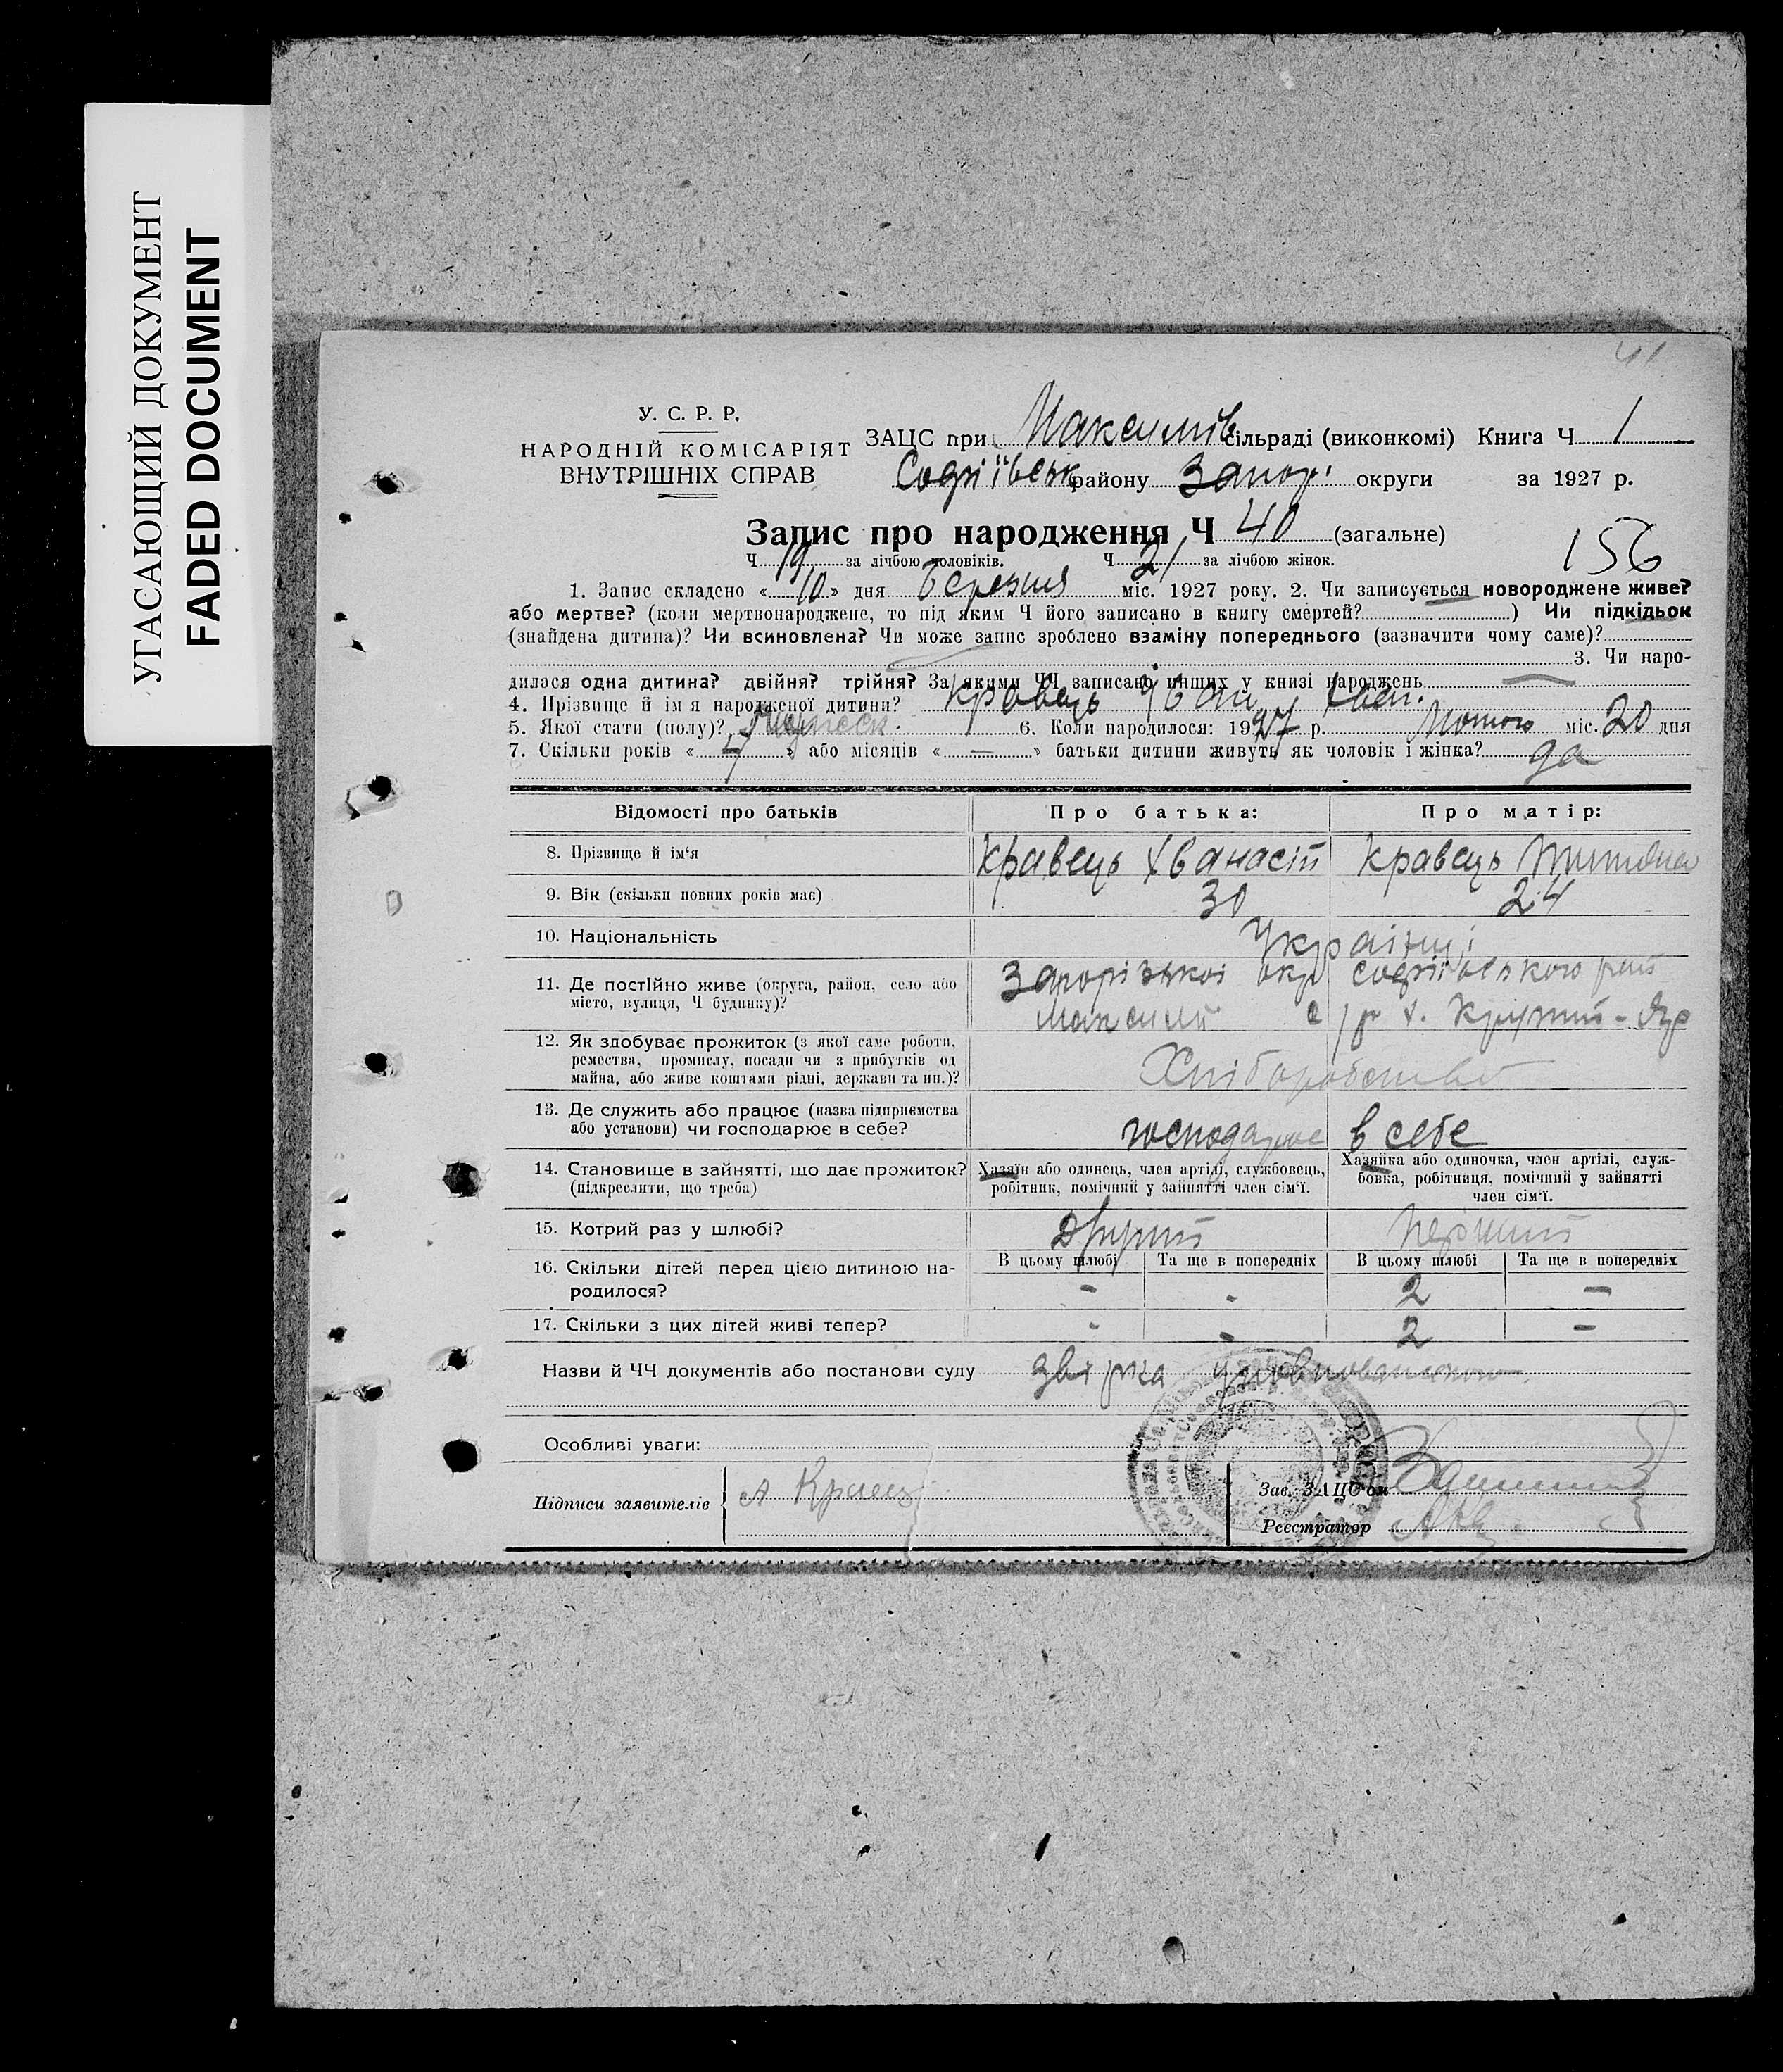 УГАСАЮЩИЙ ДОКУМЕНТ
FADED DOCUMENT
41
У. С. Р. Р.
НАРОДНІЙ КОМІСАРІЯТ
ВНУТРІШНІХ СПРАВ
ЗАЦС при Максимів сільраді (виконкомі) Книга Ч 1
Софіївськ району Запор. округи за 1927 р.
Запис про народження Ч 40 (загальне)
156
Ч 19 за лічбою чоловіків. Ч 21 за лічбою жінок.
1. Запис складено « 10 » дня березня міс. 1927 року. 2. Чи записується новороджене живе?
або мертве? (коли мертвонароджене, то під яким Ч його записано в книгу смертей? ) Чи підкідьок
(знайдена дитина)? Чи всиновлена? Чи може запис зроблено взаміну попереднього (зазначити чому саме)?
3. Чи наро-
дилася одна дитина? двійня? трійня? За якими ЧЧ записано инших у книзі народжень
4. Прізвище й ім'я народженої дитини? Кравець Іван
5. Якої стати (полу)? 6. Коли народилося: 1927 р. Лютого міс. 20 дня
7. Скільки років « 4 » або місяців « — » батьки дитини живуть як чоловік і жінка? да
Відомості про батьків Про батька: Про матір:
8. Прізвище й ім'я Кравець Хванасій Кравець
9. Вік (скільки повних років має) 30 24
10. Національність Українці
11. Де постійно живе (округа, район, село або
місто, вулиця, Ч будинку)?
Запорізької окр Софіївського рай
Максимів с/р х. Крутий-Яр
12. Як здобуває прожиток (з якої саме роботи,
ремества, промислу, посади чи з прибутків од
майна, або живе коштами рідні, держави та ин.)?
Хліборобство
13. Де служить або працює (назва підприємства
або установи) чи господарює в себе?
господарює в себе
14. Становище в зайнятті, що дає прожиток?
(підкреслити, що треба)
Хазяїн або одинець, член артілі, службовець,
робітник, помічний у зайнятті член сім'ї.
Хазяйка або одиночка, член артілі, служ-
бовка, робітниця, помічний у зайнятті
член сім'ї.
15. Котрий раз у шлюбі? другий перший
16. Скільки дітей перед цією дитиною на-
родилося?
В цьому шлюбі Та ще в попередніх В цьому шлюбі Та ще в попередніх
- - 2 —
17. Скільки з цих дітей живі тепер? - - 2 —
Назви й ЧЧ документів або постанови суду звірка
Особливі уваги:
Підписи заявителів А Кравец
Зав. ЗАЦС'ом
Реєстратор